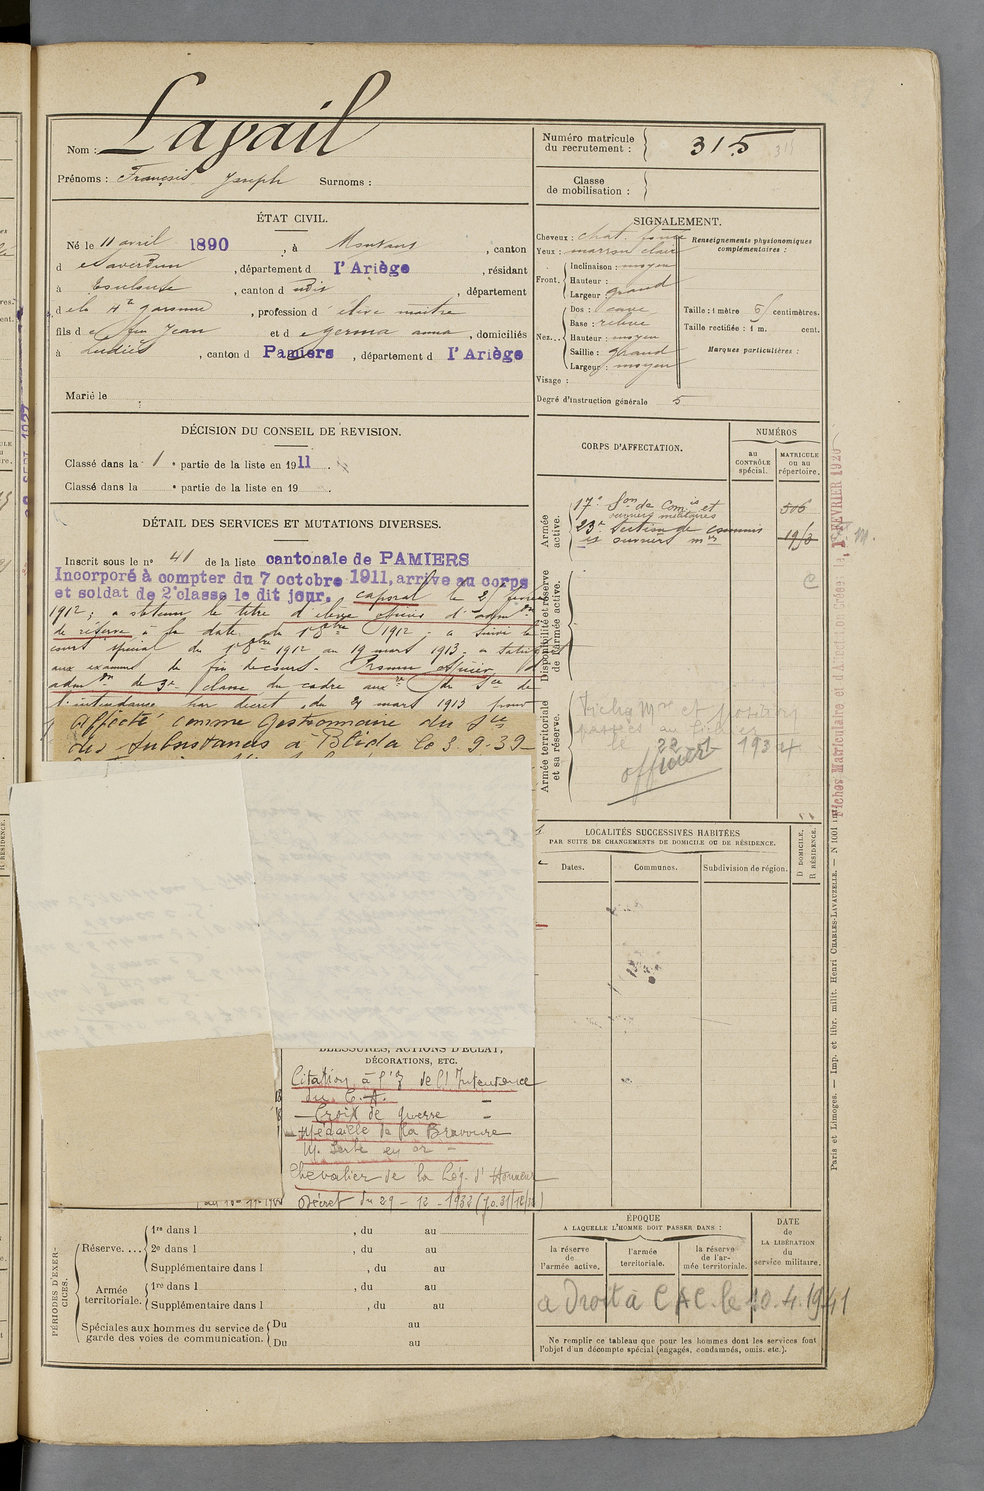 Nom : Lapail
Prénoms : François Joseph Surnoms :
Numéro matricule du recrutement : 315
Classe de mobilisation :
ÉTAT CIVIL.
Né le 11 avril 1890, à Montaut, canton
de Saverdun, département d l'Ariège, résidant
à Toulouse, canton d udit, département
d e la Hte garonne, profession d' élève maître
fils d e feu Jean et d e germa anna, domiciliés
à Ludiès, canton d Pamiers, département d l'Ariège
Marié le
SIGNALEMENT.
Cheveux : chat. foncé
Yeux : marron clair
Front. Inclinaison : moyen
Hauteur :
Largeur grand
Nez... Dos : cave
Base : relevé
Hauteur : moyen
Saillie : grand
Largeur : moyen
Visage :
Renseignements physionomiques complémentaires :
Taille : 1 mètre 61 centimètres.
Taille rectifiée : 1 m. cent.
Marques particulières :
Degré d'instruction générale 5
DÉCISION DU CONSEIL DE REVISION.
Classé dans la 1e partie de la liste en 1911.
Classé dans la e partie de la liste en 19 .
DÉTAIL DES SERVICES ET MUTATIONS DIVERSES.
Inscrit sous le n° 41 de la liste cantonale de PAMIERS
Incorporé à compter du 7 octobre 1911, arrivé au corps
et soldat de 2e classe le dit jour. caporal le
1912; a obtenu le titre d'élève officier d'admon
de réserve à la date du 1er 8bre 1912; a suivi le
cours spécial du 1er 8bre 1912 au 19 mars 1913; a satisfait
aux examens de fin de cours. Promu officier d'
admon de 3e classe du cadre aux. du Sce de
l'intendance par décret du 27 mars 1913 pour
Affecté comme Gestionnaire du Sce
des Subsistances à Blida le 3-9-39
CORPS D'AFFECTATION.
NUMÉROS
au CONTRÔLE spécial.
MATRICULE ou au répertoire.
Armée active.
17e Son de Comis et
ouvriers militaires 506
23e Section de commis
et ouvriers mres 19/3
Disponibilité et réserve de l'armée active.
Armée territoriale et sa réserve.
Fiches Mle et position
passées au fichier
le 22 1934
officiers
Fiches Matriculaire et d'Affection Créées le 1er FEVRIER 1926
LOCALITÉS SUCCESSIVES HABITÉES
PAR SUITE DE CHANGEMENTS DE DOMICILE OU DE RÉSIDENCE.
Dates. Communes. Subdivision de région.
D DOMICILE. R RÉSIDENCE.
BLESSURES, ACTIONS D'ÉCLAT,
DÉCORATIONS, ETC.
Citation à l'o/ de l'Intendance
du C.A.
Croix de guerre
Médaille de la Bravoure
M. Serbe en or
Chevalier de la Lég. d'Honneur
Décret du 29-12-1932 (J.O. 31/12/32)
PÉRIODES D'EXERCICES.
Réserve.... 1re dans l , du au
2e dans l , du au
Supplémentaire dans l , du au
Armée territoriale. 1re dans l , du au
Supplémentaire dans l , du au
Spéciales aux hommes du service de garde des voies de communication. Du au
Du au
ÉPOQUE
A LAQUELLE L'HOMME DOIT PASSER DANS :
la réserve de l'armée active.
l'armée territoriale.
la réserve de l'armée territoriale.
DATE de LA LIBÉRATION du service militaire.
a droit à CAC. le 10.4.1941
Ne remplir ce tableau que pour les hommes dont les services font l'objet d'un décompte spécial (engagés, condamnés, omis, etc.).
Paris et Limoges. — Imp. et libr. milit. Henri CHARLES-LAVAUZELLE. — N 1001